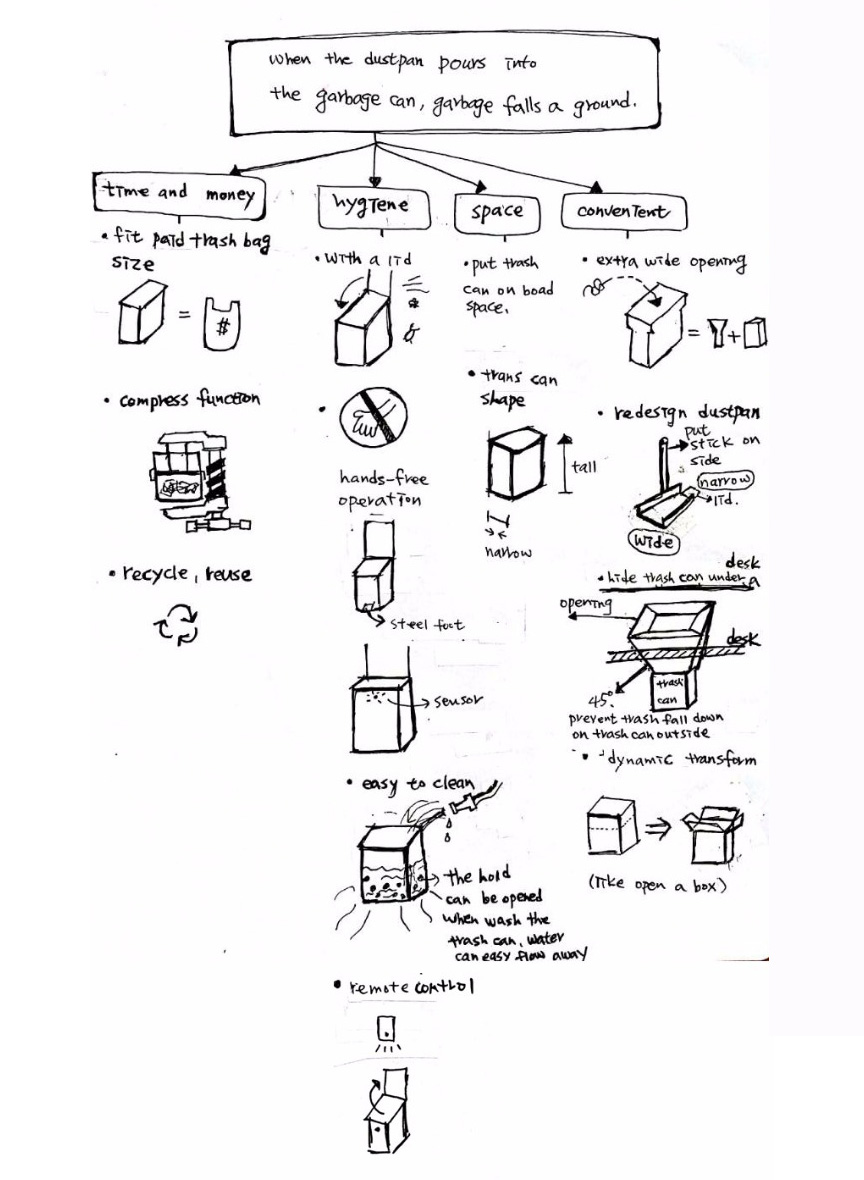 when the dustpan pours into
the garbage can, garbage falls a ground.
time and money
• fit paid trash bag
size
=
#
• compress function
• recycle, reuse
hygiene
• with a lid
•
hands-free
operation
steel foot
sensor
• easy to clean
the hold
can be opened
when wash the
trash can, water
can easy flow away
• remote control
space
• put trash
can on boad
space.
• trans can
shape
tall
narrow
convenient
• extra wide opening
= +
• redesign dustpan
put
stick on
side
narrow
lid.
wide
desk
• hide trash can under a
opening
desk
trash
can
45°
prevent trash fall down
on trash can outside
• dynamic transform
(like open a box)